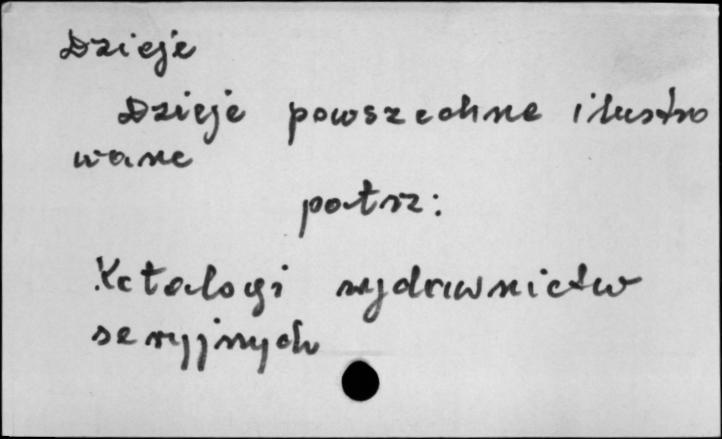 Dzieje
Dzieje powszechne ilustro
wane
patrz:
Katalogi wydawnictw
seryjnych